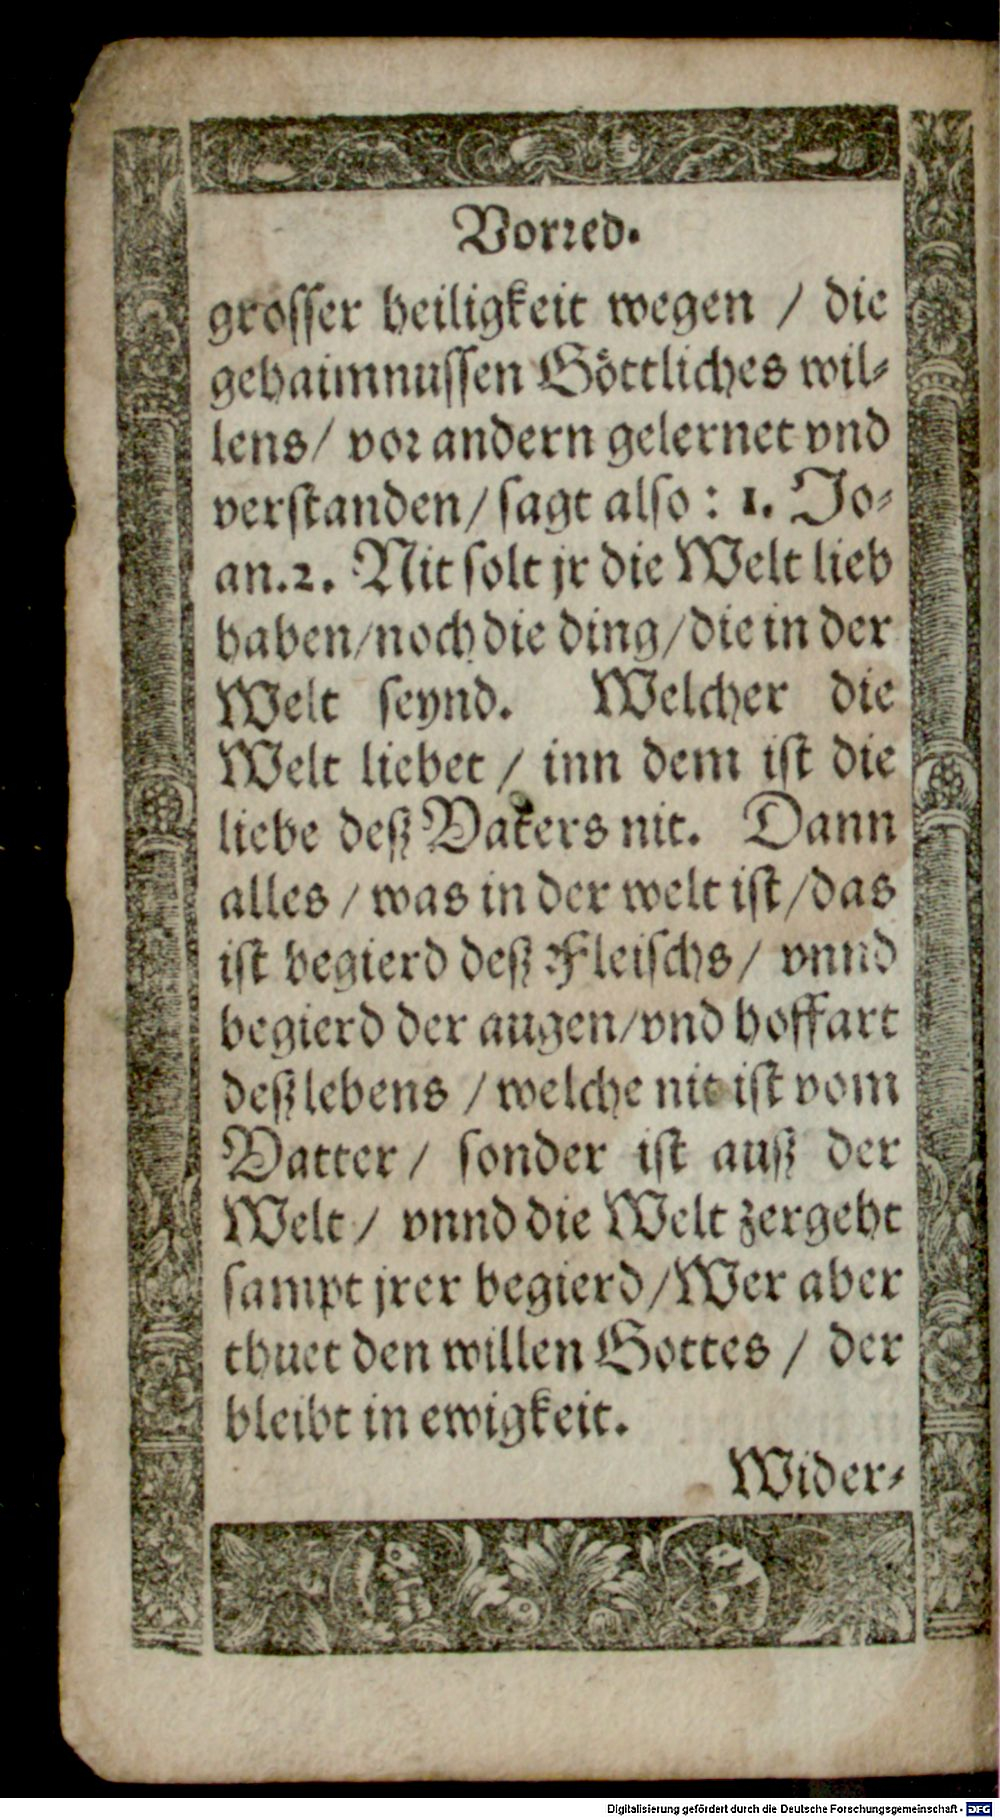 Vorred.
grosser heiligkeit wegen / die
gehaimnussen Göttliches wil⸗
lens / vor andern gelernet vnd
verstanden / sagt also : 1. Jo⸗
an. 2. Nit solt jr die Welt lieb
haben / noch die ding / die in der
Welt seynd. Welcher die
Welt liebet / inn dem ist die
liebe deß Vaters nit. Dann
alles / was in der welt ist / das
ist begierd deß Fleischs / vnnd
begierd der augen / vnd hoffart
deß lebens / welche nit ist vom
Vatter / sonder ist auß der
Welt / vnnd die Welt zergeht
sampt jrer begierd / Wer aber
thuet den willen Gottes / der
bleibt in ewigkeit.
Wider⸗
Digitalisierung gefördert durch die Deutsche Forschungsgemeinschaft - DFG